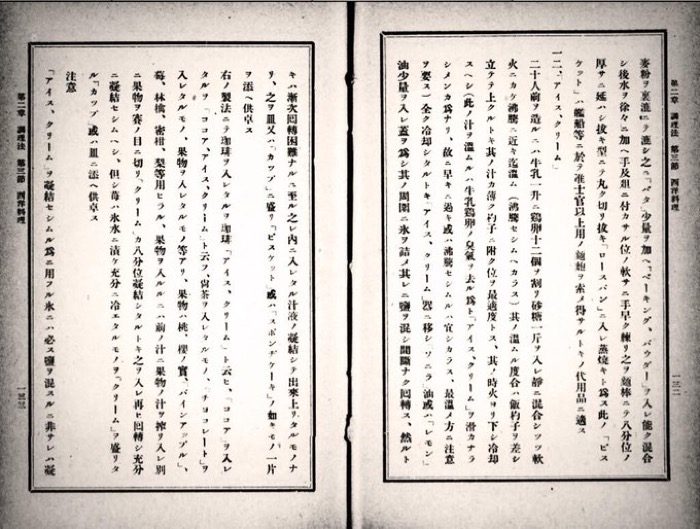 第二章　調理法　第三節　西洋料理
一三二
麥粉ヲ裏漉ニテ漉シ之ニ「バタ」少量ヲ加ヘ「ベーキング、パウダー」ヲ入レ能ク混合
シ後水ヲ徐々ニ加ヘ手及俎ニ付カサル位ノ軟サニ手早ク練リ之ヲ麺棒ニテ八分位ノ
厚サニ延ヘシ拔キ型ニテ丸ク切リ拔キ「ロースパン」ニ入レ蒸燒キト爲ス此ノ「ビス
ケット」ハ艦船等ニ於テ準士官以上用ノ麺麭ヲ索メ得サルトキノ代用品ニ適ス
一二、アイス、クリーム」
二十人前ヲ造ルニハ牛乳一升ニ鷄卵十二個ヲ割リ砂糖一斤ヲ入レ靜ニ混合シツツ軟
火ニカケ沸騰ニ近キ迄溫ム（沸騰セシムヘカラス）其ノ溫ムル度合ハ飯杓子ヲ差シ
立テテ上クルトキ其ノ汁カ薄ク杓子ニ附ク位ヲ最適度トス、其ノ時火ヨリ下シ冷却
スヘシ（此ノ汁ヲ溫ムルハ牛乳鷄卵ノ臭氣ヲ去ル爲ト「アイス、クリーム」ヲ滑カナラ
シメンカ爲ナリ、故ニ早キニ過キ或ハ沸騰セシムルハ宜シカラス、最溫メ方ニ注意
ヲ要ス）全ク冷却シタルトキ「アイス、クリーム」器ニ移シ「ソニラ」油或ハ「レモン」
油少量ヲ入レ蓋ヲ爲シ其ノ周圍ニ氷ヲ詰メ其レニ鹽ヲ混シ間斷ナク回轉ス、然ルト
キハ漸次回轉困難ナルニ至ル之レ內ニ入レタル汁液ノ凝結シテ出來上リタルモノナ
リ、之ヲ皿又ハ「カップ」ニ盛リ「ビスケット」或ハ「スポンヂケーキ」ノ如キモノ一片
ヲ添ヘ供卓ス
右ノ製法ニテ珈琲ヲ入レタルヲ珈琲「アイス、クリーム」ト云ヒ、「ココア」ヲ入レ
タルヲ「ココア、アイス、クリーム」ト云フ、尙茶ヲ入レタルモノ、「チョコレート」ヲ
入レタルモノ、果物ヲ入レタルモノ等アリ、果物ハ桃、櫻ノ實、「パインアップル」、
莓、林檎、密柑、梨等用ヒラル、果物ヲ入ルルニハ前ノ汁ニ果物ノ汁ヲ搾リ入レ別
ニ果物ヲ賽ノ目ニ切リ「クリーム」カ八分位凝結シタルトキ之ヲ入レ再ヒ回轉シ充分
ニ凝結セシムヘシ、但シ莓ハ氷水ニ漬ケ充分ニ冷エタルモノヲ「クリーム」ヲ盛リタ
ル「カップ」或ハ皿ニ添ヘ供卓ス
注意
「アイス、クリーム」ヲ凝結セシムル爲ニ用フル氷ニハ必ス鹽ヲ混スルニ非サレハ凝
第二章　調理法　第三節　西洋料理
一三三